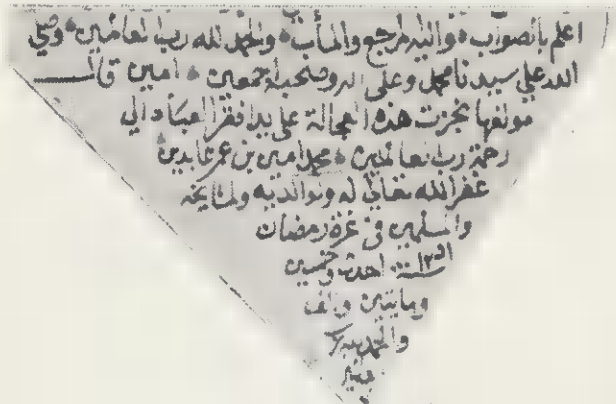 اعلم بالصواب واليه المرجع والمأب والحمد لله رب العالمين وصلى
الله علي سيدنا محمد وعلى اله وصحبه اجمعين امين قال
مولفها نجزت هذه العجالة على يد افقر العباد الي
رحمة رب العالمين محمد امين بن عمر عابدين
غفر الله تعالى له ولوالديه ولمشايخه
والمسلمين في غرة رمضان
سنة احدى وخمسين
ومايتين والف
والحمد لله